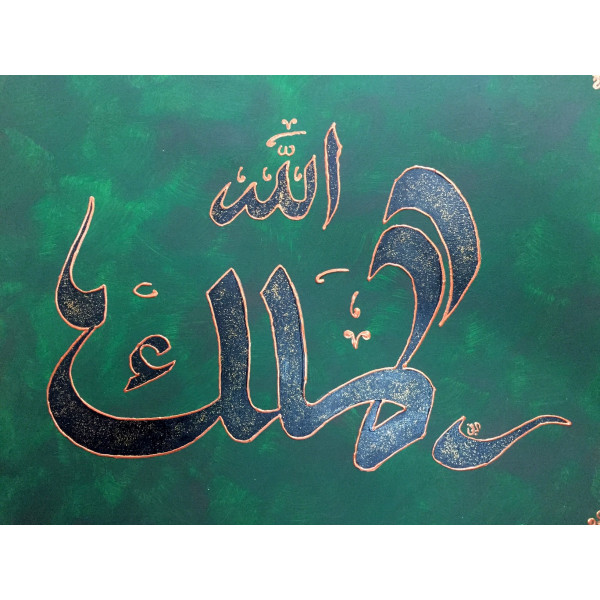 الله
الملك